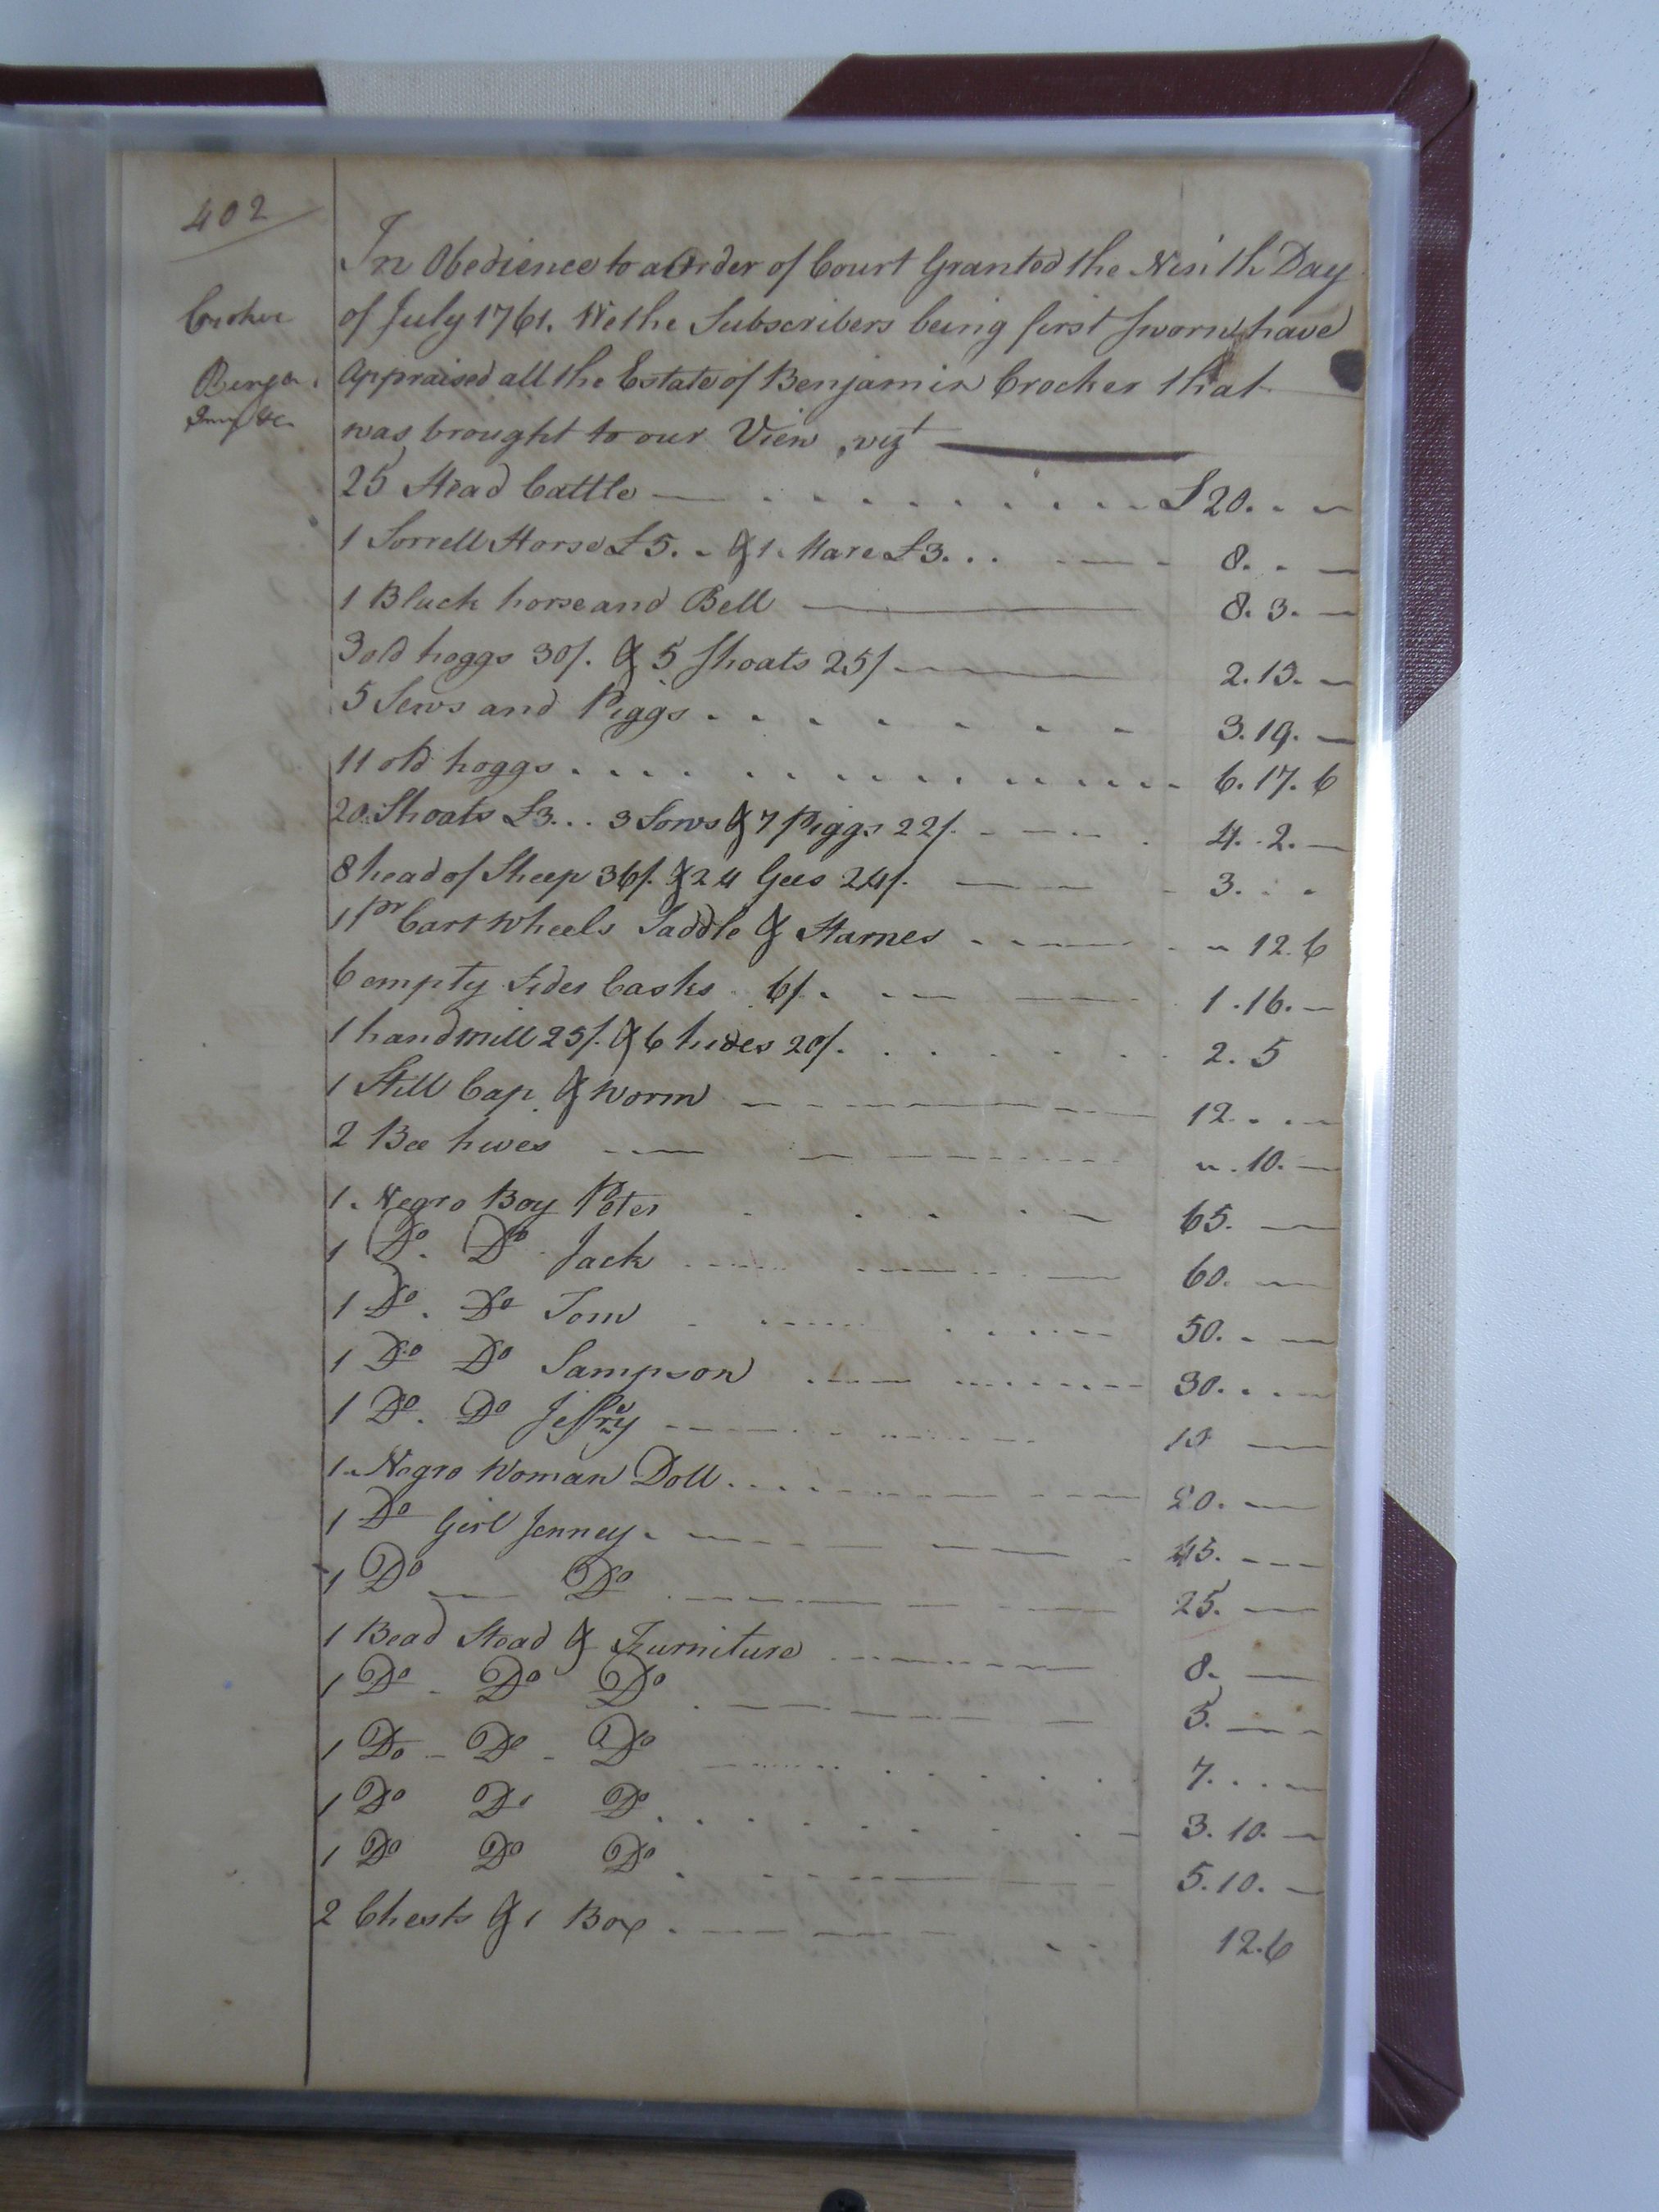 402
In Obedience to a Order of Court Granted the Ninth Day
Crocker
of July 1761. We the Subscribers being first Sworn have
Benja.
Appraised all the Estate of Benjamin Crocker that
Invy &c
was brought to our View, vizt
25 Head Cattle £20. - -
1 Sorrell Horse £5. - & 1. Mare £3... 8. - -
1 Black horse and Bell 8. 3. -
3 old hoggs 30/. & 5 Shoats 25/ 2. 15. -
5 Sows and Piggs 3. 19. -
11 old hoggs 6. 17. 6
20 Shoats £3... 3 Sows & 7 Piggs 22/. 4. 2. -
8 head of Sheep 36/. & 24 Gees 24/. 3. - -
1 pr Cart Wheels Saddle & Harnes " 12. 6
6 empty Sider Casks 6/. 1. 16. -
1 hand mill 25/. & 6 hides 20/. 2. 5
1 Still Cap & Worm 12. - -
2 Bee hives ". 10. -
1. Negro Boy Peter 65. -
1 Do. Do. Jack 60. -
1 Do. Do Tom 50. - -
1 Do Do Sampson 30. - -
1 Do. Do Jeffry 15 -
1. Negro Woman Doll 20. -
1 Do Girl Jenney. 45. - -
1 Do Do 25. -
1 Bead Stead & Furniture 8. -
1 Do - Do Do 5. - -
1 Do - Do - Do 7. - -
1 Do Do Do 3. 10. -
1 Do Do Do 5. 10. -
2 Chests & 1 Box 12. 6